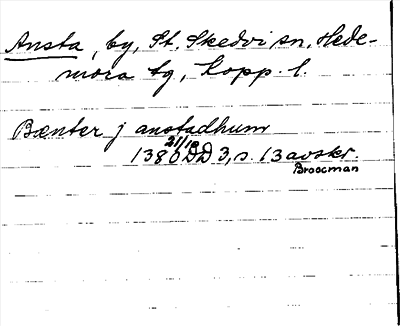 Ansta, by, St. Skedvi sn, Hede-
mora tg, Kopp. l.
Bænter j anstadhum
1386 21/12 DD 3, s. 13 avskr.
Broocman